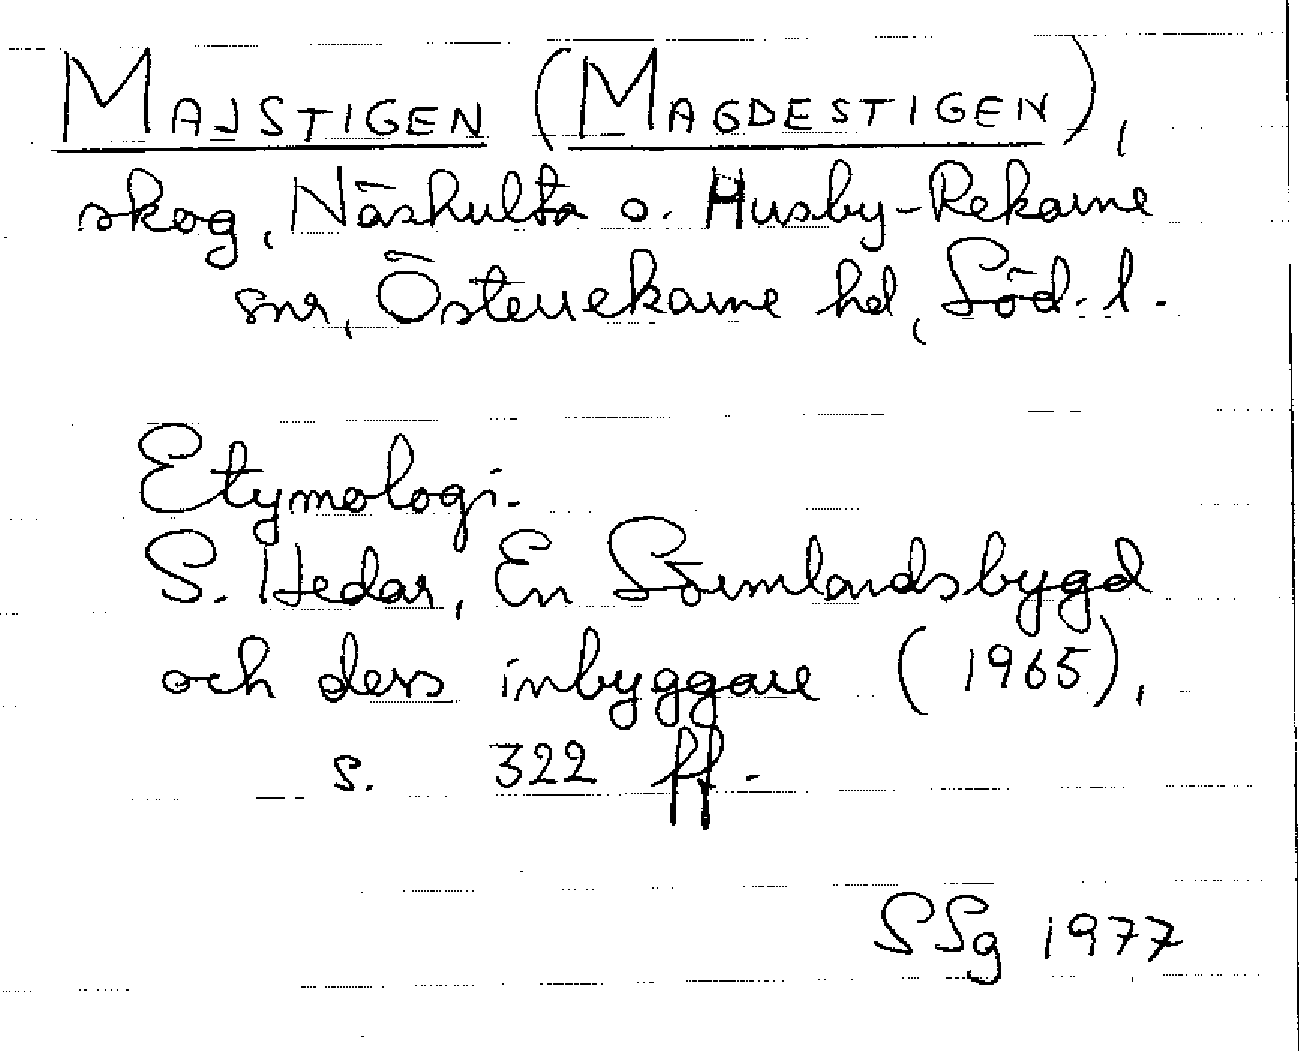 MAJSTIGEN (MAGDESTIGEN),
skog, Näshulta o. Husby-Rekarne
snr, Österrekarne hd, Söd. l.
Etymologi.
S. Hedar, En Sörmlandsbygd
och dess inbyggare (1965),
s. 322 ff.
SSg 1977